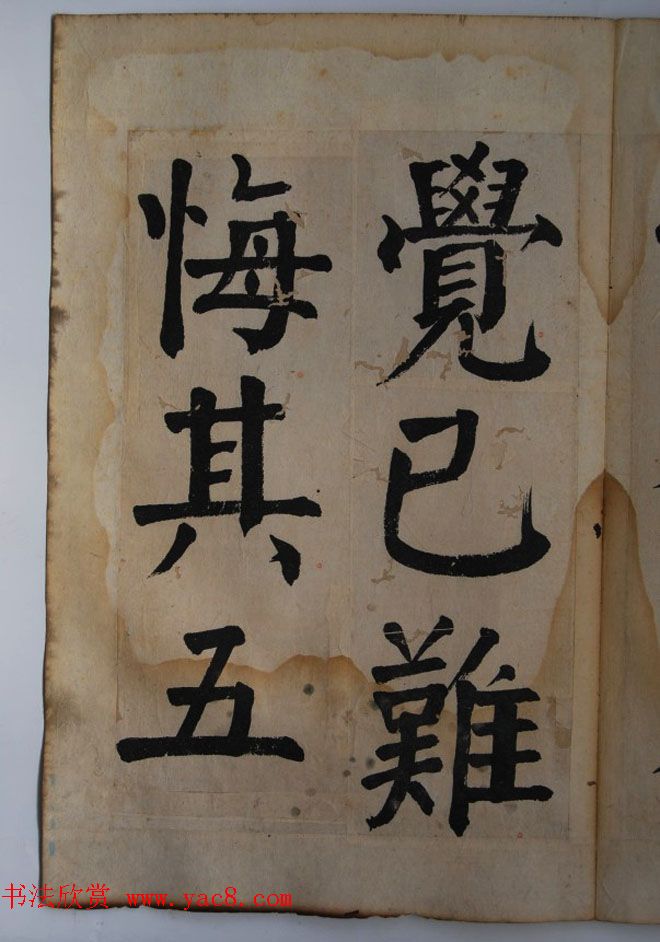 覺已難
悔其五
书法欣赏 www.yac8.com